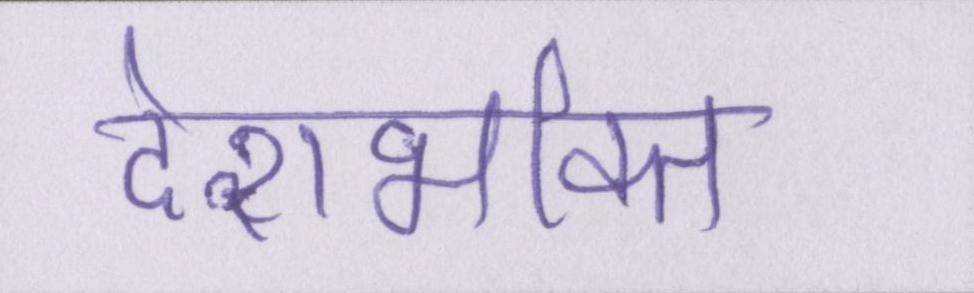 देशभक्ति